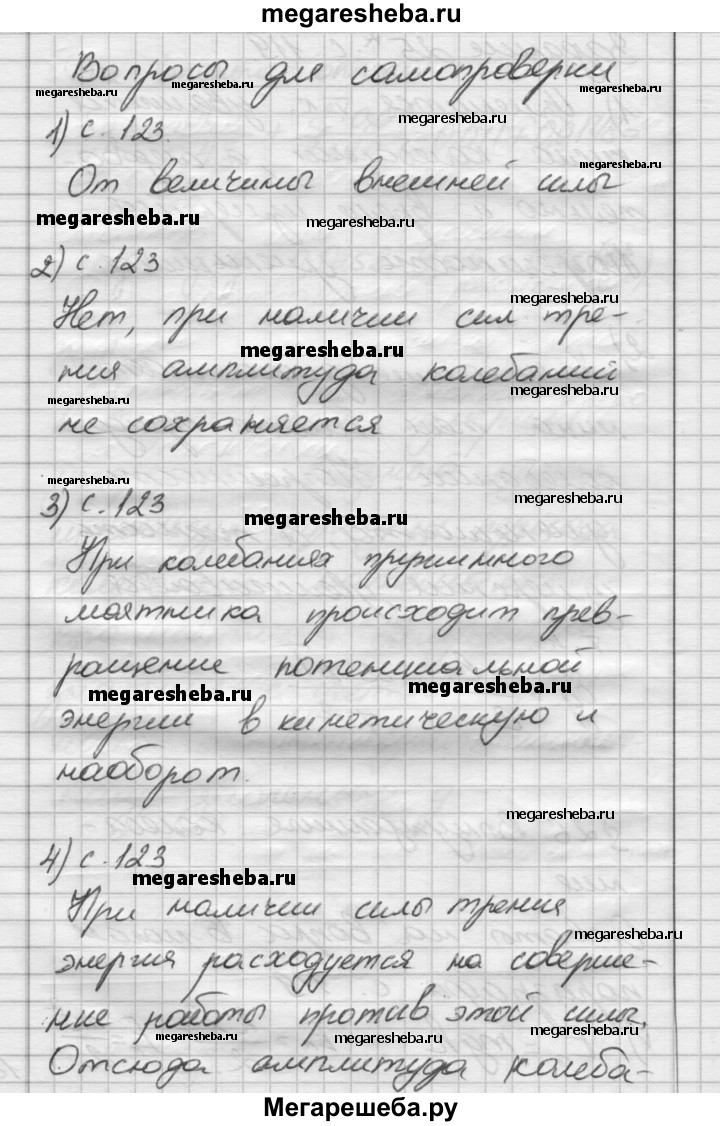 megaresheba.ru
Вопросы для самопроверки
megaresheba.ru megaresheba.ru megaresheba.ru
1) с. 123.
megaresheba.ru
megaresheba.ru
От величины внешней силы
megaresheba.ru megaresheba.ru
2) с. 123
megaresheba.ru
Нет, при наличии сил тре-
megaresheba.ru
ния амплитуда колебаний
megaresheba.ru
megaresheba.ru
не сохраняется
megaresheba.ru
3) с. 123
megaresheba.ru
megaresheba.ru
При колебаниях пружинного
маятника происходит прев-
ращение потенциальной
megaresheba.ru megaresheba.ru
энергии в кинетическую и
наоборот.
megaresheba.ru
4) с. 123
megaresheba.ru
При наличии силы трения
megaresheba.ru
энергия расходуется на соверше-
ние работы против этой силы.
megaresheba.ru megaresheba.ru
Отсюда амплитуда колеба-
Мегарешеба.ру